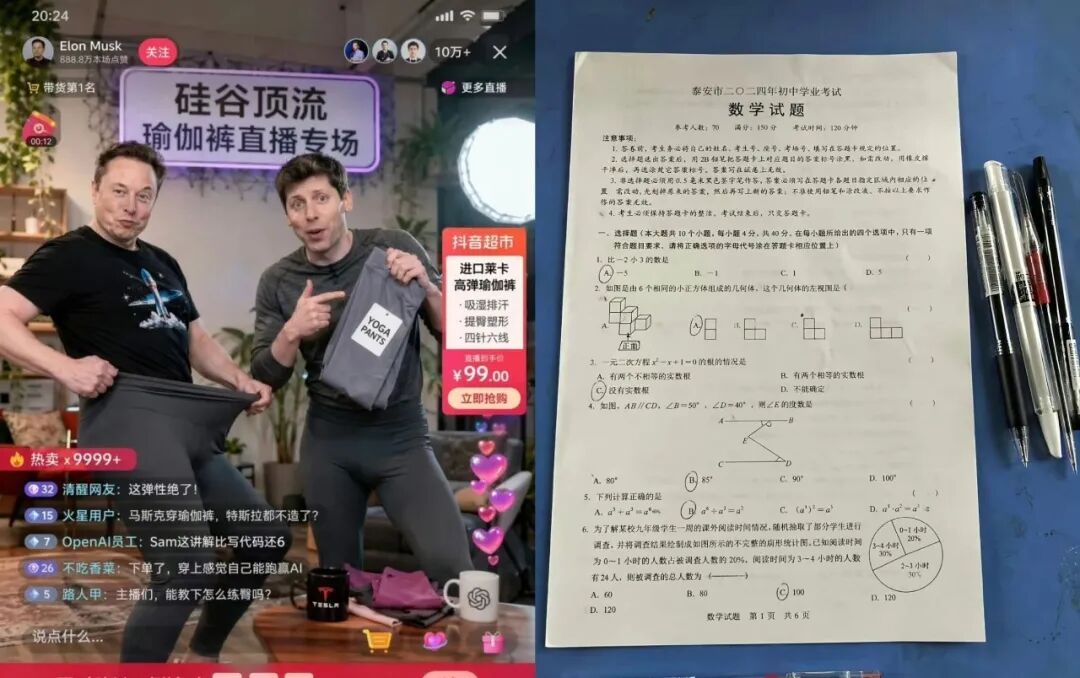 20:24
Elon Musk
888.8万本场点赞
关注
10万+
带货第1名
更多直播
00:12
硅谷顶流
瑜伽裤直播专场
抖音超市
进口莱卡
高弹瑜伽裤
·吸湿排汗
·提臀塑形
·四针六线
直播到手价
¥99.00
立即抢购
YOGA
PANTS
热卖 x9999+
32 清醒网友：这弹性绝了！
15 火星用户：马斯克穿瑜伽裤，特斯拉都不造了？
7 OpenAI员工：Sam这讲解比写代码还6
26 不吃香菜：下单了，穿上感觉自己能跑赢AI
5 路人甲：主播们，能教下怎么练臀吗？
TESLA
说点什么...
泰安市二〇二四年初中学业考试
数学试题
参考人数：70 满分：150分 考试时间：120分钟
注意事项：
1. 答卷前，考生务必将自己的姓名、考生号、座号、考场号、填写在答题卡规定的位置。
2. 选择题选出答案后，用2B铅笔把答题卡上对应题目的答案标号涂黑，如需改动，用橡皮擦
干净后，再选涂规它答案标号。答案写在试卷上无效。
3. 非选择题必须用0.5毫米黑色签字笔作答，答案必须写在答题卡各题目指定区域内相应的位
置，需改动，先划掉原来的答案，然后再写上新的答案；不准使用铅笔和涂改液。不按以上要求作
作的答案无效。
4. 考生必须保持答题卡的整洁。考试结束后，只交答题卡。
一、选择题（本大题共10个小题，每小题4分，共40分。在每小题所给出的四个选项中，只有一项
符合题目要求，请将正确选项的字母代号涂在答题卡相应位置上）
1. 比－2小3的数是 （ ）
A. －5 B. －1 C. 1 D. 5
2. 如图是由6个相同的小正方体组成的几何体，这个几何体的左视图是（
（ ）
A. A. B. C. D.
正面
3. 一元二次方程x²－x＋1＝0的根的情况是 （ ）
A. 有两个不相等的实数根 B. 有两个相等的实数根
C. 没有实数根 D. 不能确定
4. 如图，AB∥CD，∠B＝50°，∠D＝40°，则∠E的度数是 （ ）
A B
E
C D
A. 80° B. 85° C. 90° D. 100°
5. 下列计算正确的是 （ ）
A. a³＋a³＝a⁶ B. a⁶÷a³＝a² C. （a³）²＝a³ D. a⁴·a²＝a²
6. 为了解某校九年级学生一周的课外阅读时间情况，随机抽取了部分学生进行
调查，并将调查结果绘制成如图所示的不完整的扇形统计图。已知阅读时间
为0～1小时的人数占被调查人数的20%，阅读时间为3～4小时的人数
有24人，则被调查的总人数为（ ）
0~1小时
20%
3~4小时
30%
2~3小时
30%
A. 60 B. 80 C. 100 D. 120
D. 120
数学试题 第1页 共6页